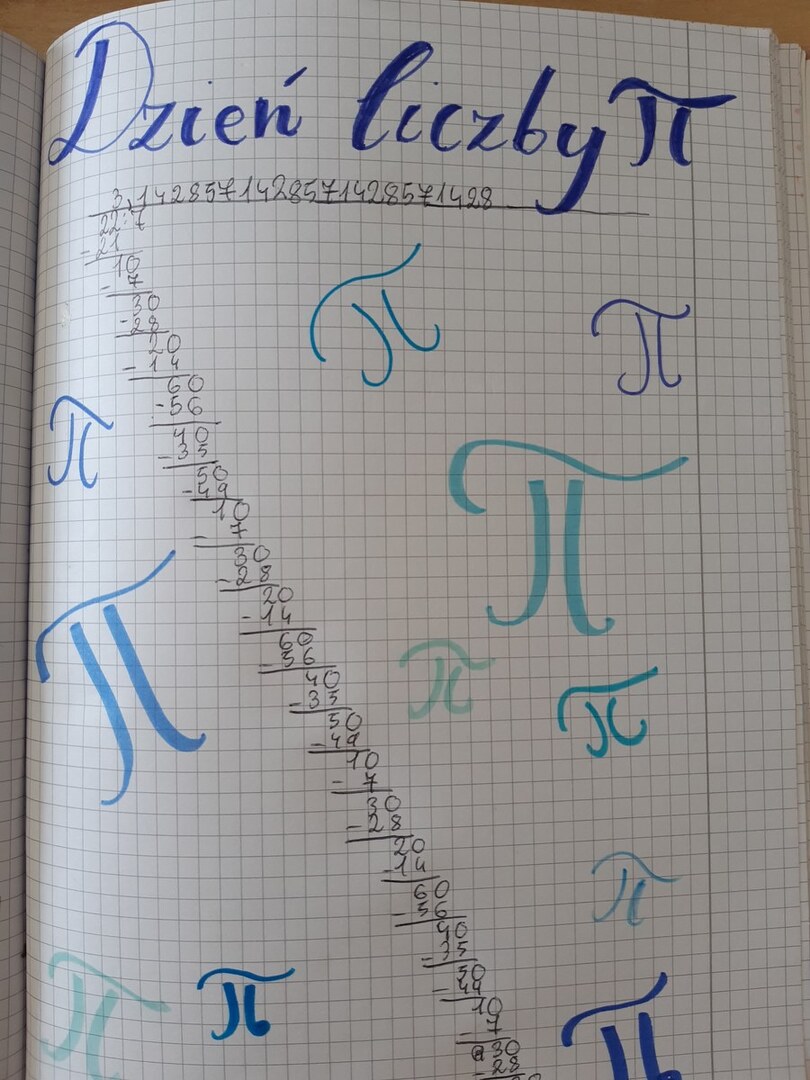 Dzień liczby π
3,1428571428571428571428
22:7
-21
10
-7
30
-28
20
-14
60
-56
40
-35
50
-49
10
-7
30
-28
20
-14
60
-56
40
-35
50
-49
10
-7
30
-28
20
-14
60
-56
40
-35
50
-49
10
-7
30
-28
π
π
π
π
π
π
π
π
π
π
π